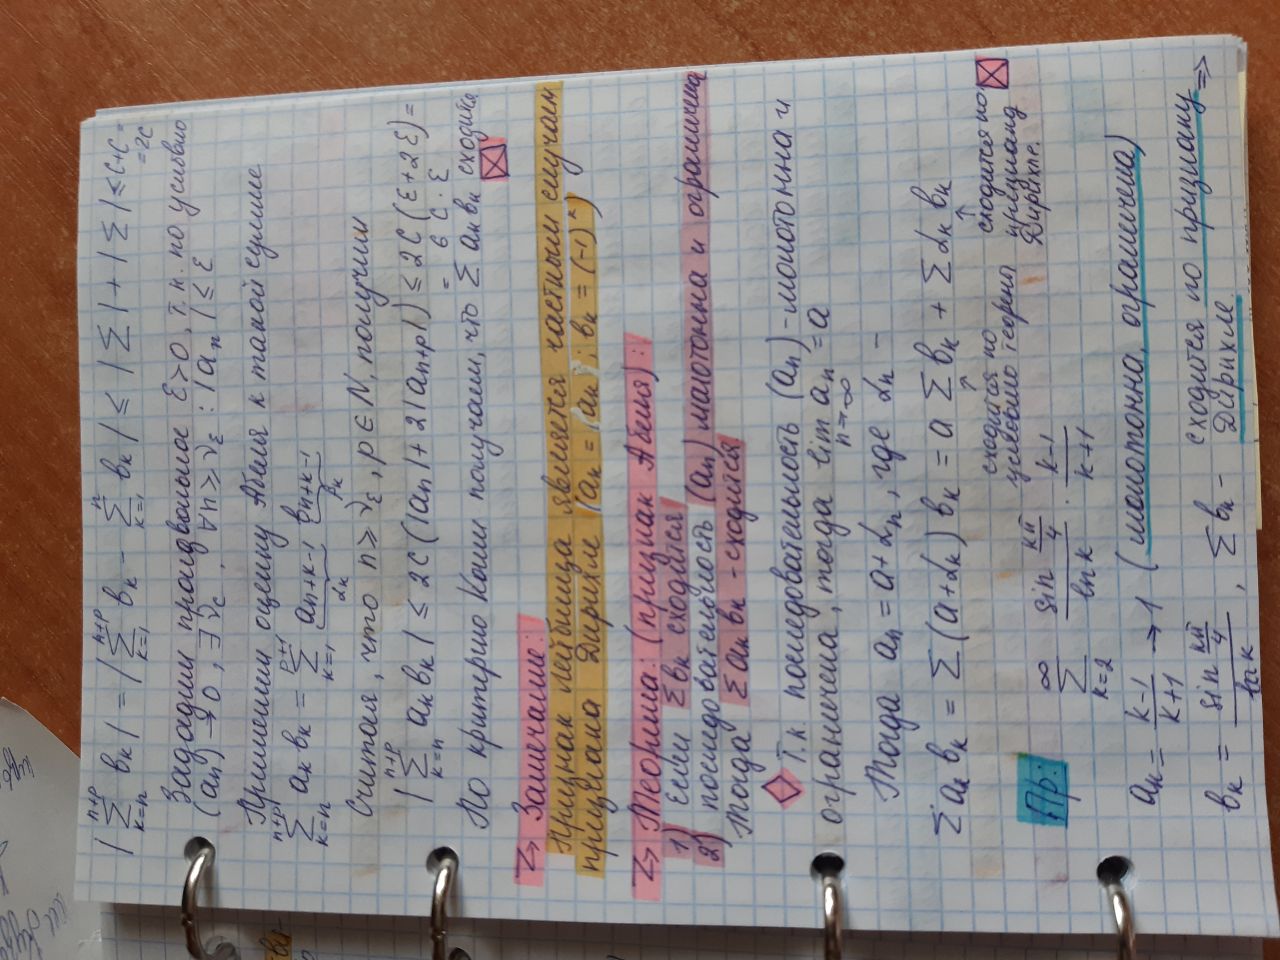 |∑_{k=n}^{n+p} bₖ| = |∑_{k=1}^{n+p} bₖ - ∑_{k=1}^{n} bₖ| ≤ |∑| + |∑| ≤ C+C =
= 2C
Зададим произвольное ε>0, т.к. по условию
(aₙ) → 0, ∃ν_ε, ∀n≥ν_ε: |aₙ| ≤ ε
Применим оценку Абеля к такой сумме
∑_{k=n}^{n+p} aₖbₖ = ∑_{k=1}^{p+1} a_{n+k-1} b_{n+k-1}
αₖ βₖ
Считая, что n ≥ ν_ε, p ∈ N, получим
|∑_{k=n}^{n+p} aₖbₖ| ≤ 2C(|aₙ| + 2|a_{n+p}|) ≤ 2C(ε+2ε) =
= 6C·ε
По критерию Коши получаем, что ∑aₖbₖ сходится
Замечание:
Признак Лейбница является частным случаем
признака Дирихле (aₖ = (aₖ); bₖ = (-1)ᵏ)
Теорема: (признак Абеля):
1) Если ∑bₖ сходится
2) последовательность (aₙ) монотонна и ограничена
Тогда ∑aₖbₖ - сходится
Т.к. последовательность (aₙ) - монотонна и
ограничена, тогда lim_{n→∞} aₙ = a
Тогда aₙ = a+αₙ, где αₙ –
∑aₖbₖ = ∑(a+αₖ)bₖ = a∑bₖ + ∑αₖbₖ
↑ ↑
сходится по сходится по
условию теоремы признаку
Дирихле.
Пр: ∑_{k=2}^{∞} (sin kπ/4)/(ln k) · (k-1)/(k+1)
aₖ = (k-1)/(k+1) → 1 (монотонна, ограничена)
bₖ = (sin kπ/4)/(ln k), ∑bₖ – сходится по признаку ⇒
Дирихле.